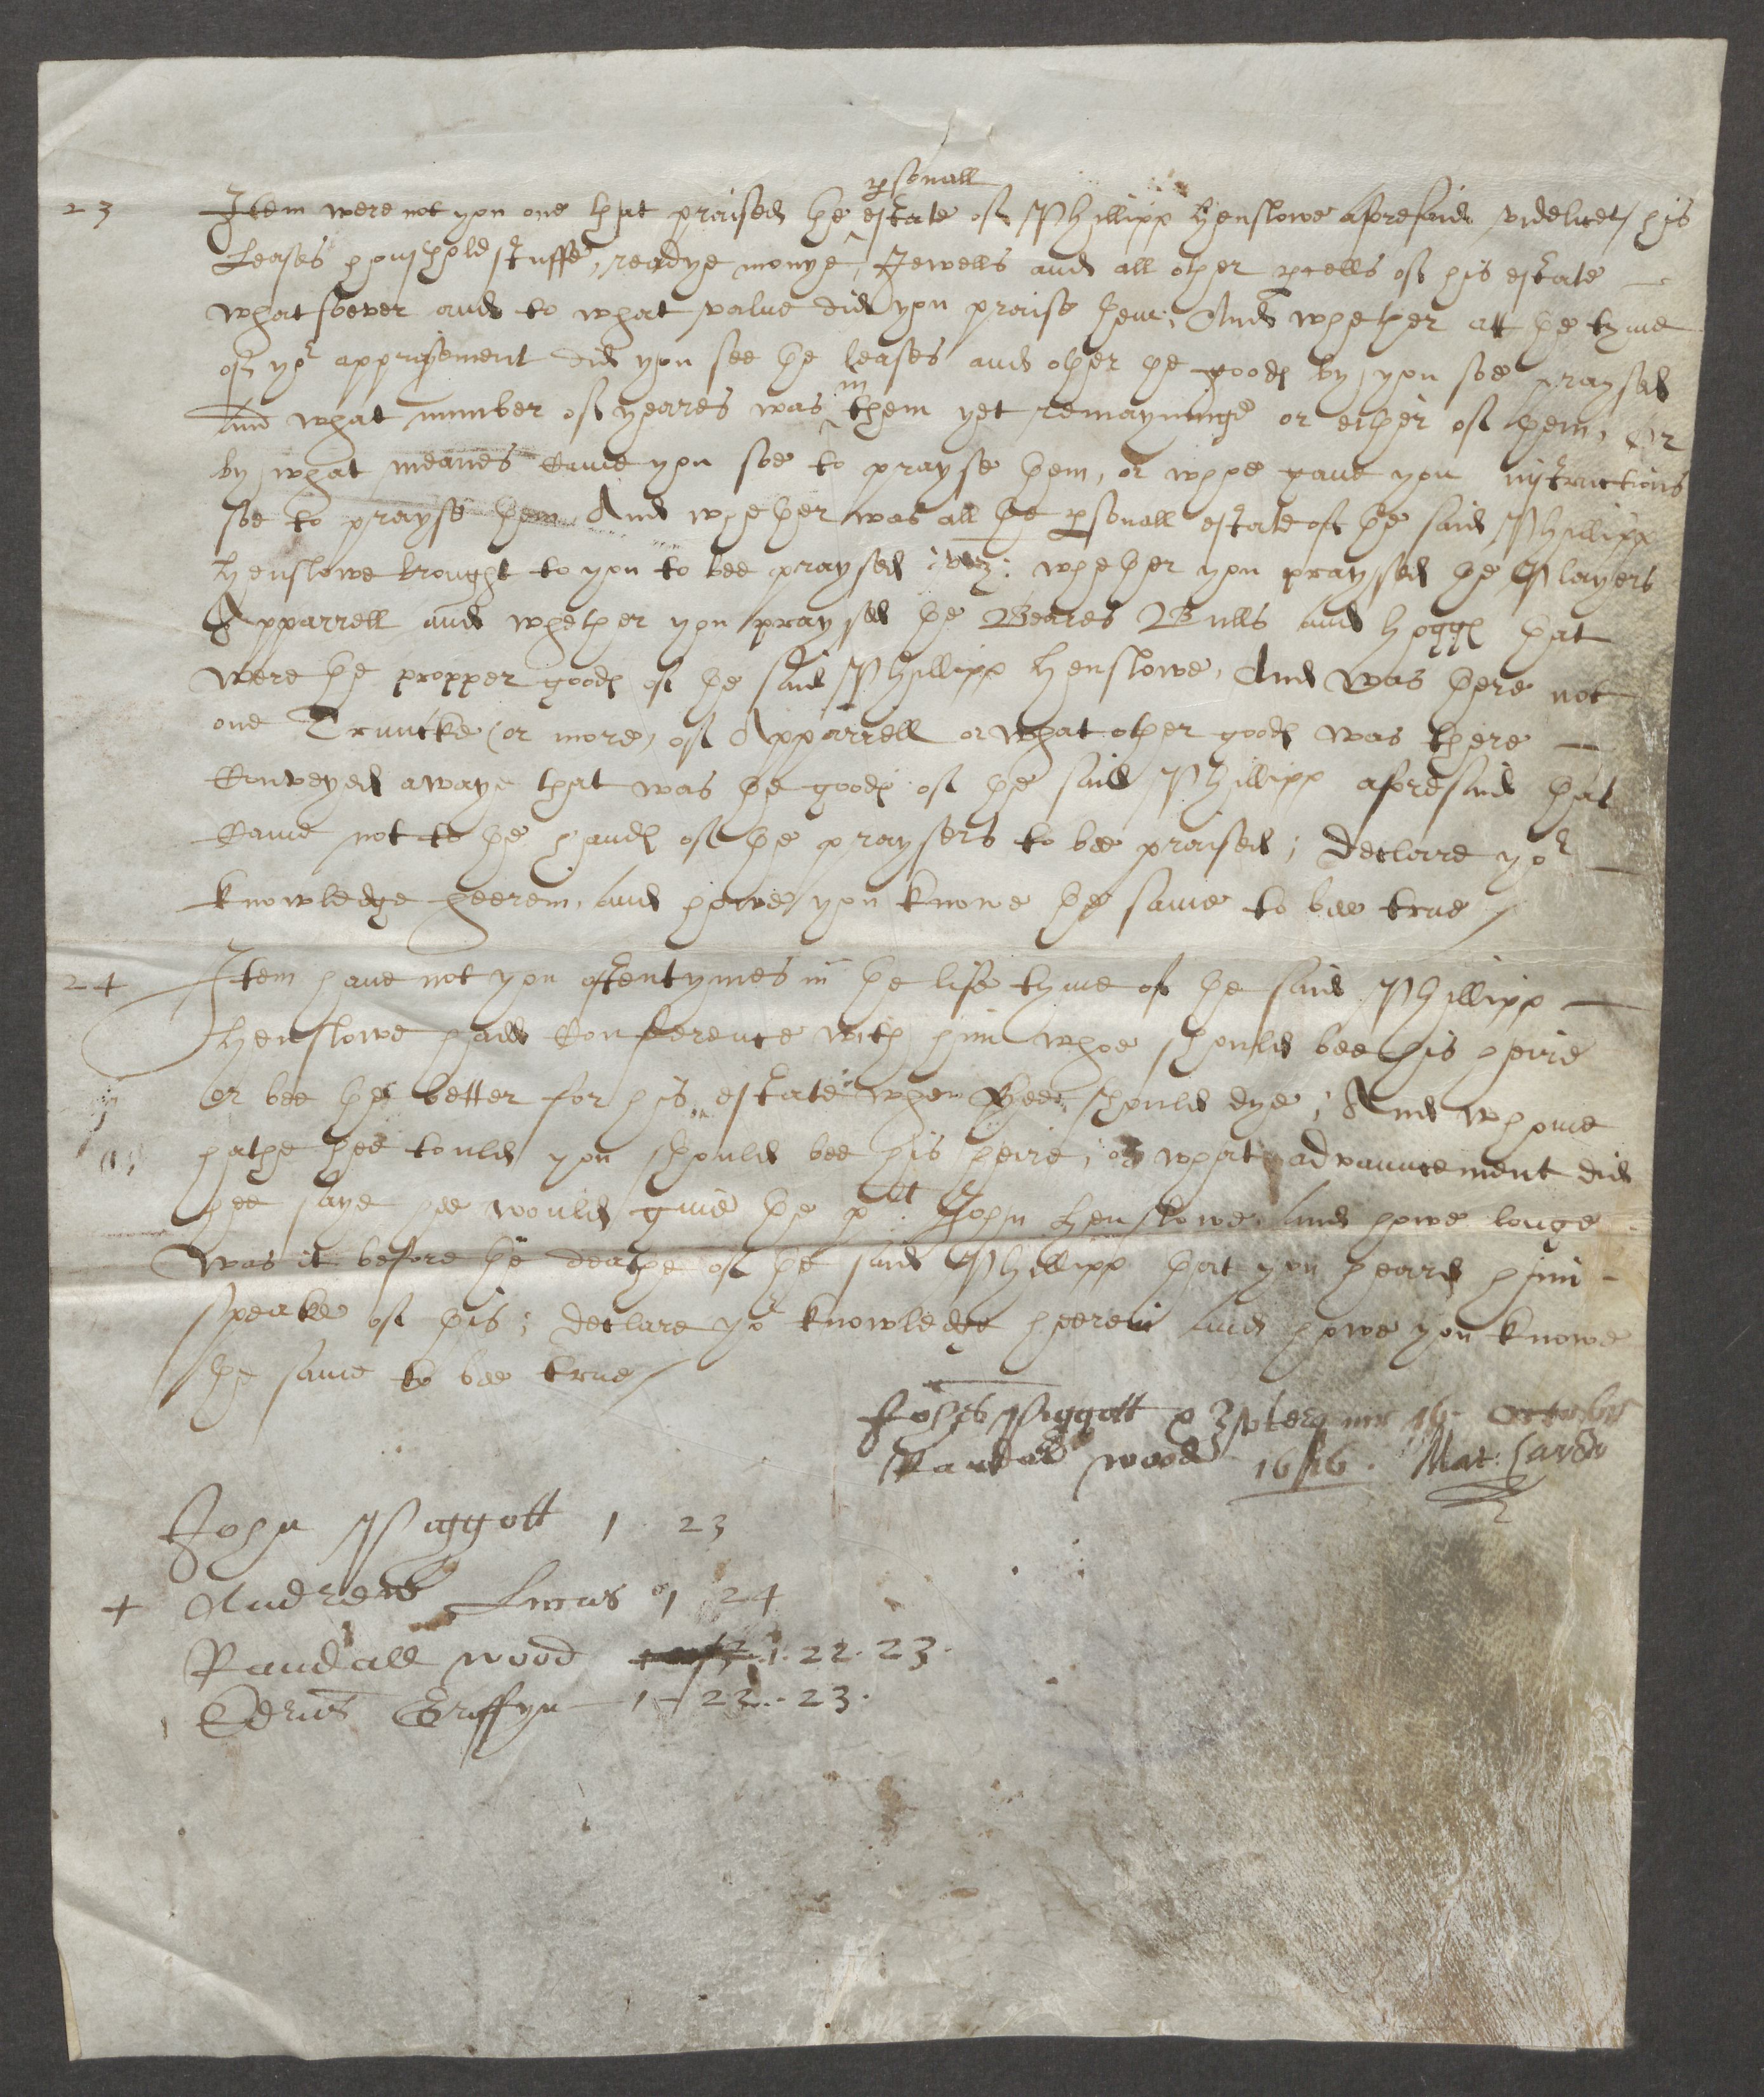 psonall
23 Item were not you one that praised the estate of Phillipp Henslowe aforesaid videlicet his
Leases houshold stuffe, readye monye, Jewells and all other pcells of his estate
whatsoever and to what value did you praise them; And whether att the tyme
of yor apprisement did you see the leases and other the goods by you soe praysed
And what number of yeares was in them yet remayninge or either of them, Or
by what meanes came you soe to prayse them, or whoe gave you instructions
soe to prayse them And whether was all the psonall estate of the said Phillipp
Henslowe brought to you to bee praysed; viz: whether you praysed the Players
Apparrell and whether you praysed the Beares Bulls and doggs that
were the propper goods of the said Phillipp Henslowe, And was there not
one Truncke (or more) of Apparrell or what other goods was there
Conveyed awaye that was the goods of the said Phillipp aforesaid that
came not to the hands of the praysers to bee praised; declare yor
knowledge heerein, and howe you knowe the same to bee true
24 Item have not you oftentymes in the life tyme of the said Phillipp
Henslowe hadd Conference with him whoe should bee his heire
or bee the better for his estate when hee should dye; And whome
hathe hee tould you should bee his heire, or what advauncement did
hee saye hee would give the plt John Henslowe, and howe longe
was it before the deathe of the said Phillipp that you heard him
speake of this; declare yor knowledge heerein and howe you knowe
the same to bee true
Johes Piggott 16 October
Randal wood 1616. Mat: Carew
John Piggott 1 23
+ Andrew Lucas 1 24
Randall wood 1. 22. 23.
Edrus Griffyn 1 - 22. - 23.